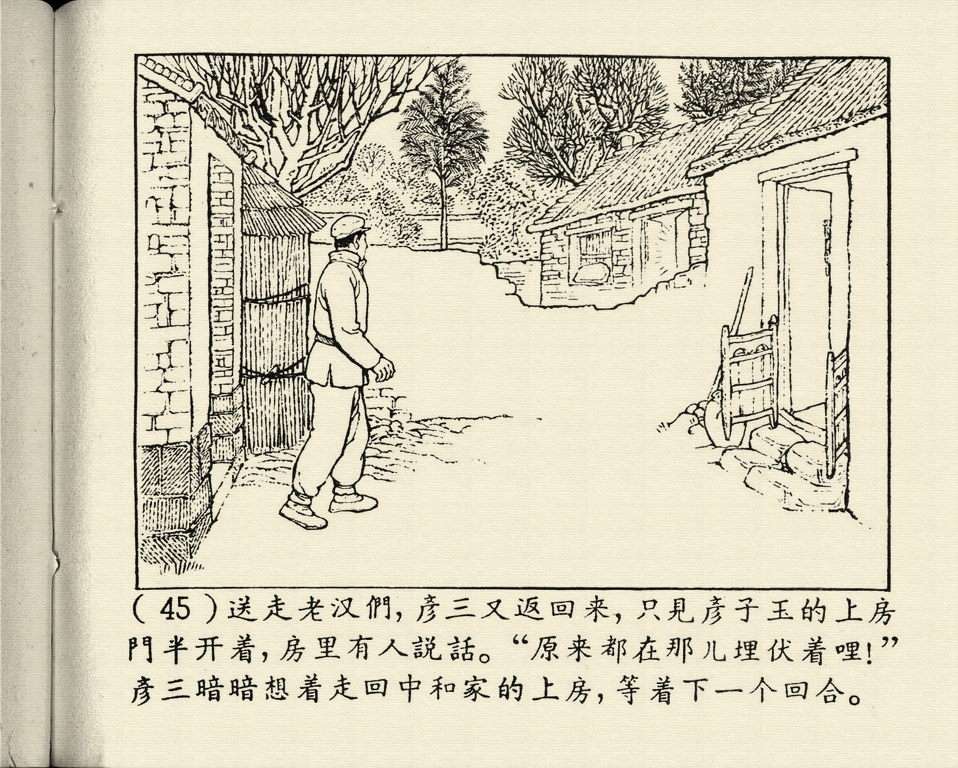 (45)送走老汉們,彦三又返回来,只見彦子玉的上房
門半开着,房里有人説話。“原来都在那儿埋伏着哩!”
彦三暗暗想着走回中和家的上房,等着下一个回合。